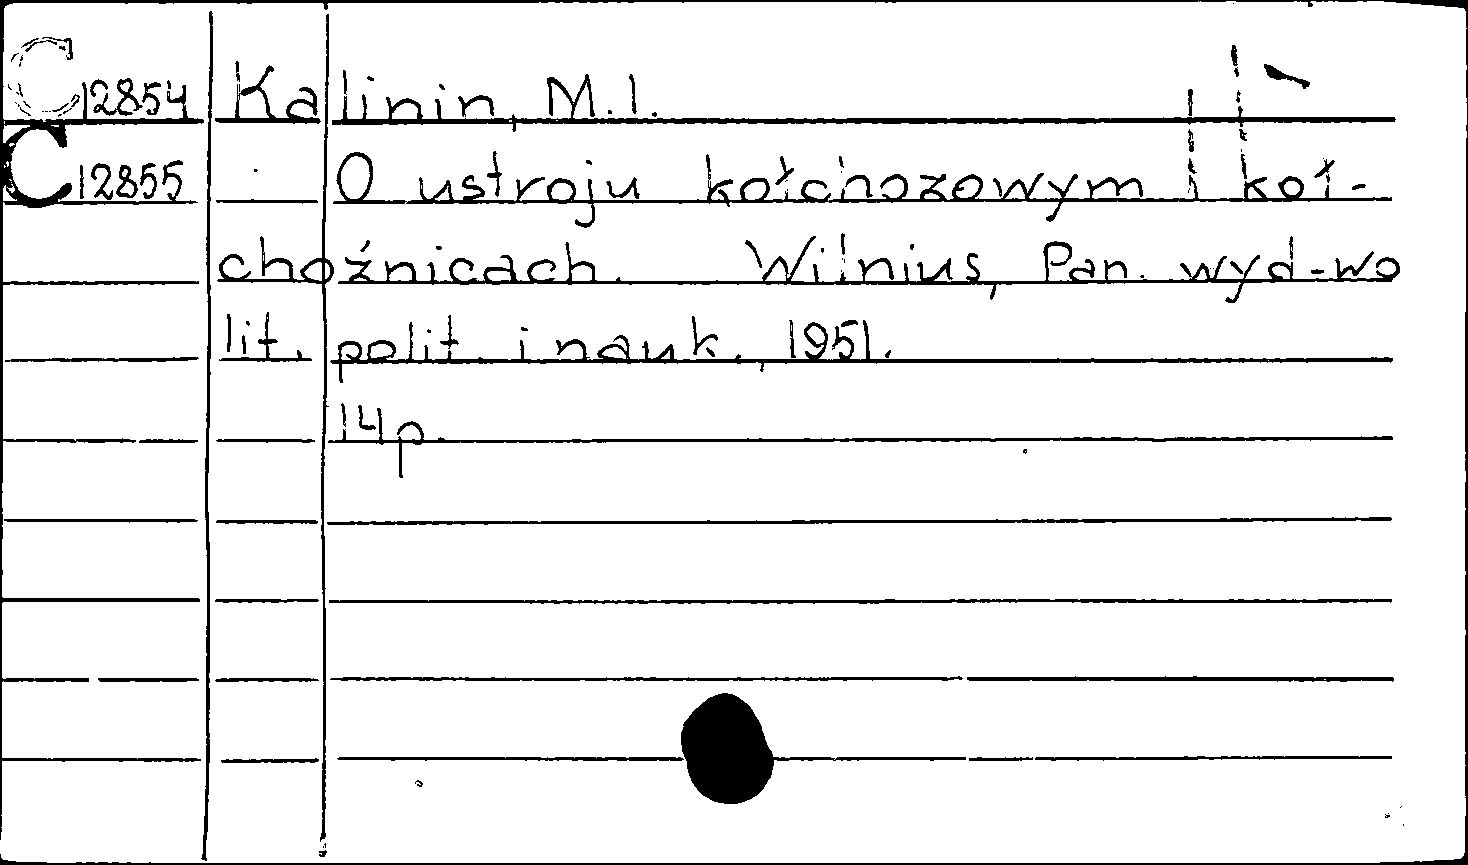 C 12854 Kalinin, M.I.
C 12855 O ustroju kołchozowym i koł-
choźnicach. Wilnius, Pan. wyd-wo
lit. polit. i nauk., 1951.
14p.